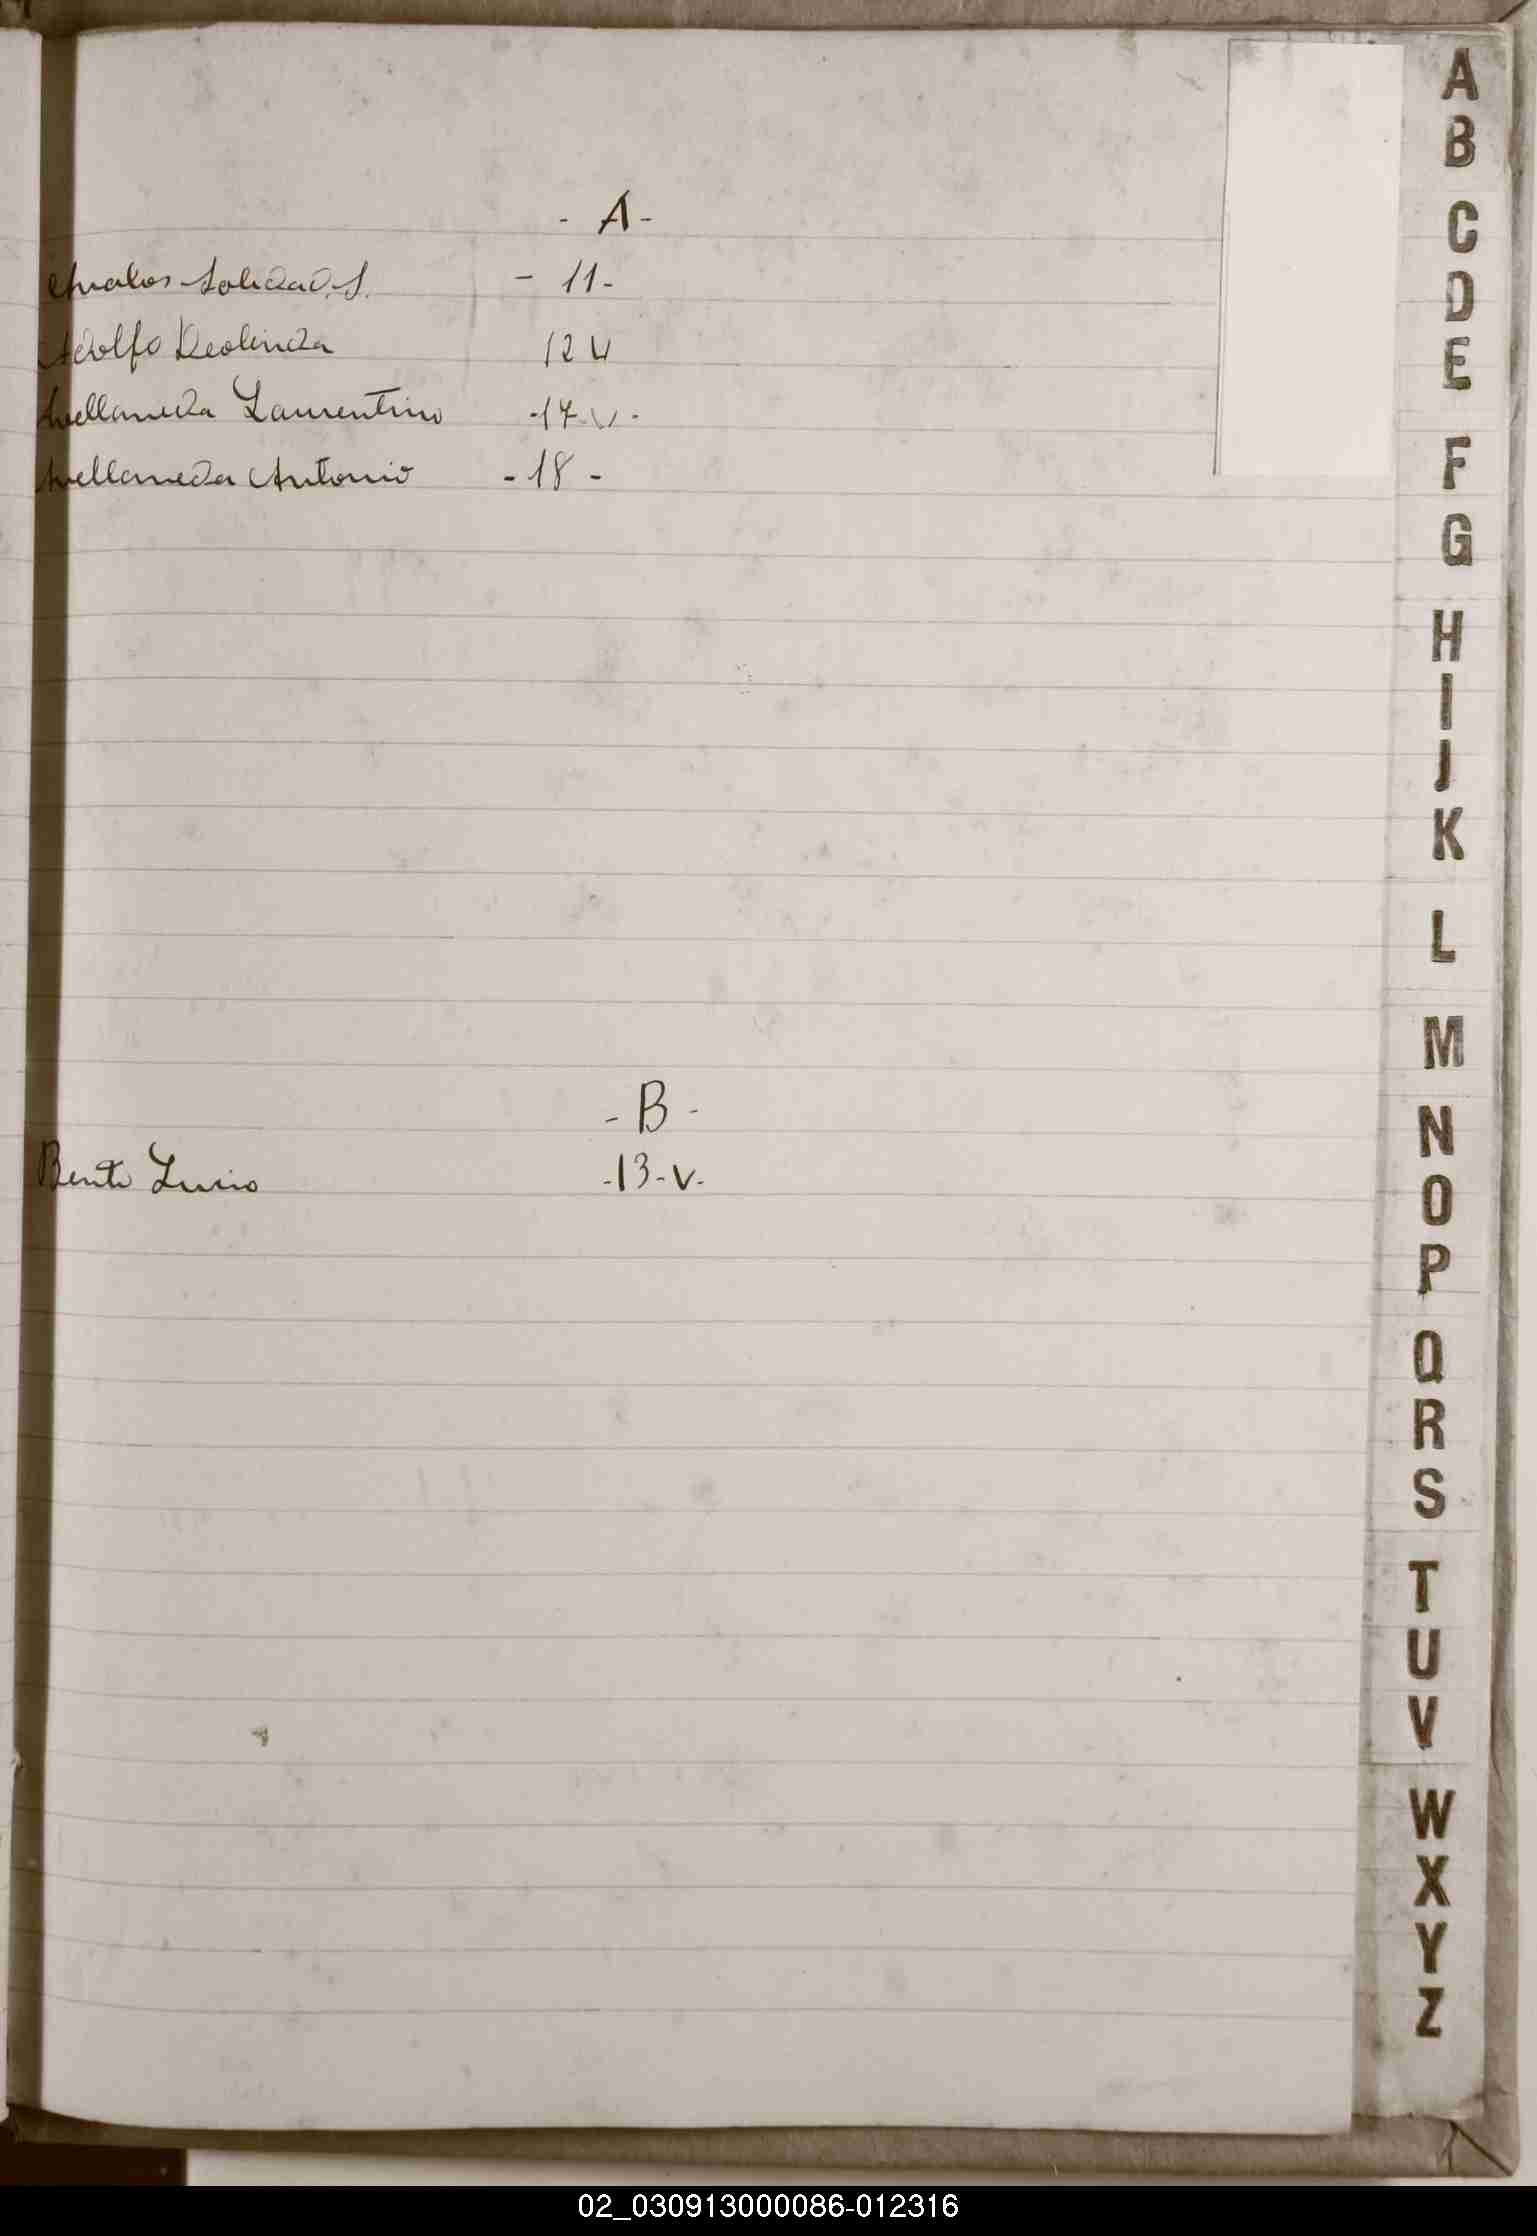 - A -
Avalos Soledad. S. - 11 -
Adolfo Deolinda 12 V
Avellaneda Laurentino - 17 - V -
Avellaneda Antonio - 18 -
- B -
Bento Lucio - 13 - V -
A
B
C
D
E
F
G
H
I
J
K
L
M
N
O
P
Q
R
S
T
U
V
W
X
Y
Z
02_030913000086-012316